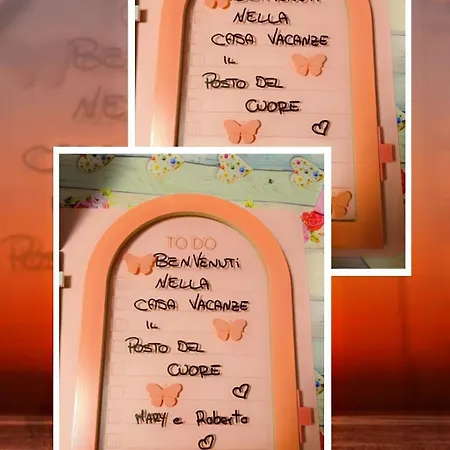 BENVENUTI
NELLA
CASA VACANZE
IL
POSTO DEL
CUORE
TO DO
BENVENUTI
NELLA
CASA VACANZE
IL
POSTO DEL
CUORE
MARY e Roberto